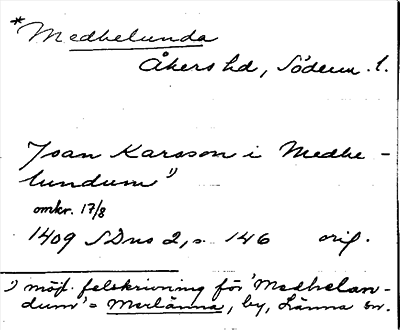 *Medhelunda
Åkers hd, Söderm. l.
Joan Karsson i Medhe-
lundum¹⁾
omkr. 17/8
1409 SD ns 2, s. 146 orig.
¹⁾ möjl. felskrivning för 'Medhelan-
dum' = Merlänna, by, Länna sn.